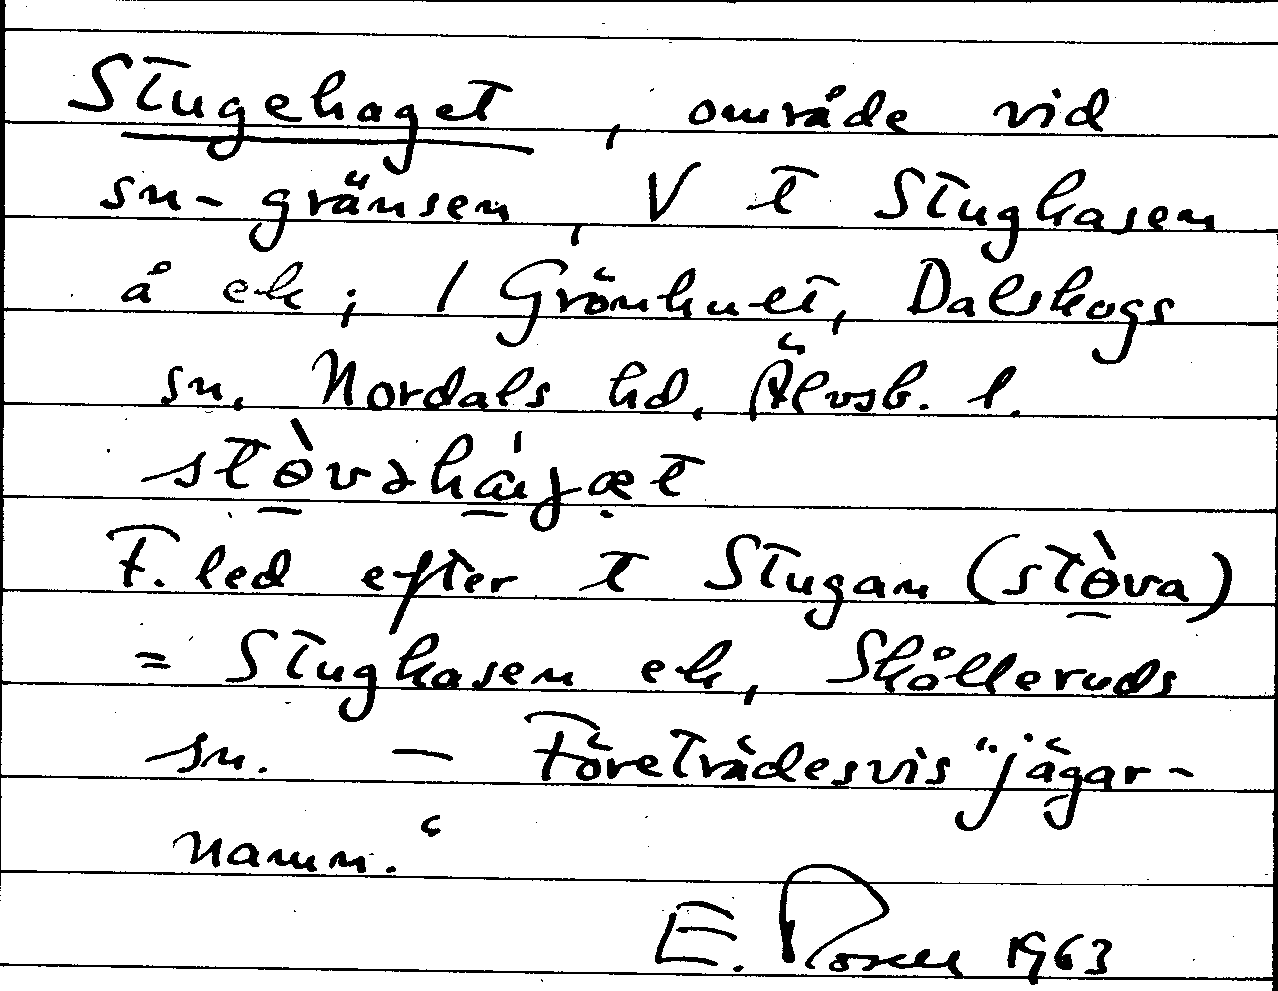 Stugehaget, område vid
sn-gränsen, V t Stugkasen
å ek; 1 Grönhult, Dalskogs
sn. Nordals hd. Älvsb. l.
stòvəháɡæt
F. led efter t Stugan (stòva)
= Stugkasen ek, Skålleruds
sn. – Företrädesvis "jägar-
namn."
E. Rosell 1963